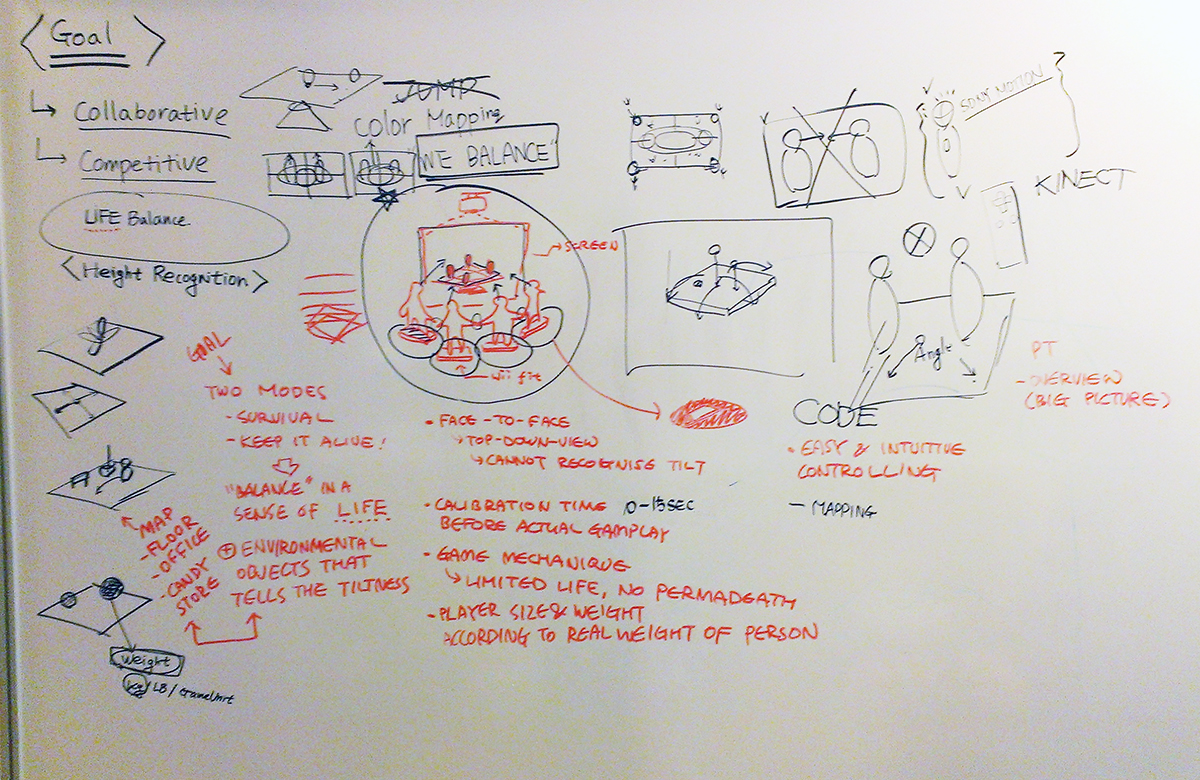 <Goal>
Collaborative
Competitive
LIFE Balance.
<Height Recognition>
JUMP
color Mapping
"WE BALANCE"
SCREEN
wii fit
SONY MOTION
KINECT
Angle
CODE
PT
- OVERVIEW
(BIG PICTURE)
GOAL
TWO MODES
- SURVIVAL
- KEEP IT ALIVE!
"BALANCE" IN A
SENSE OF LIFE
+ ENVIRONMENTAL
OBJECTS THAT
TELLS THE TILTNESS
MAP
- FLOOR
- OFFICE
- CANDY
STORE
Weight
kg / LB /
• FACE-TO-FACE
TOP-DOWN-VIEW
CANNOT RECOGNISE TILT
• CALIBRATION TIME 10-15SEC
BEFORE ACTUAL GAMPLAY
• GAME MECHANIQUE
LIMITED LIFE, NO PERMADEATH
• PLAYER SIZE & WEIGHT
ACCORDING TO REAL WEIGHT OF PERSON
• EASY & INTUITIVE
CONTROLLING
- MAPPING